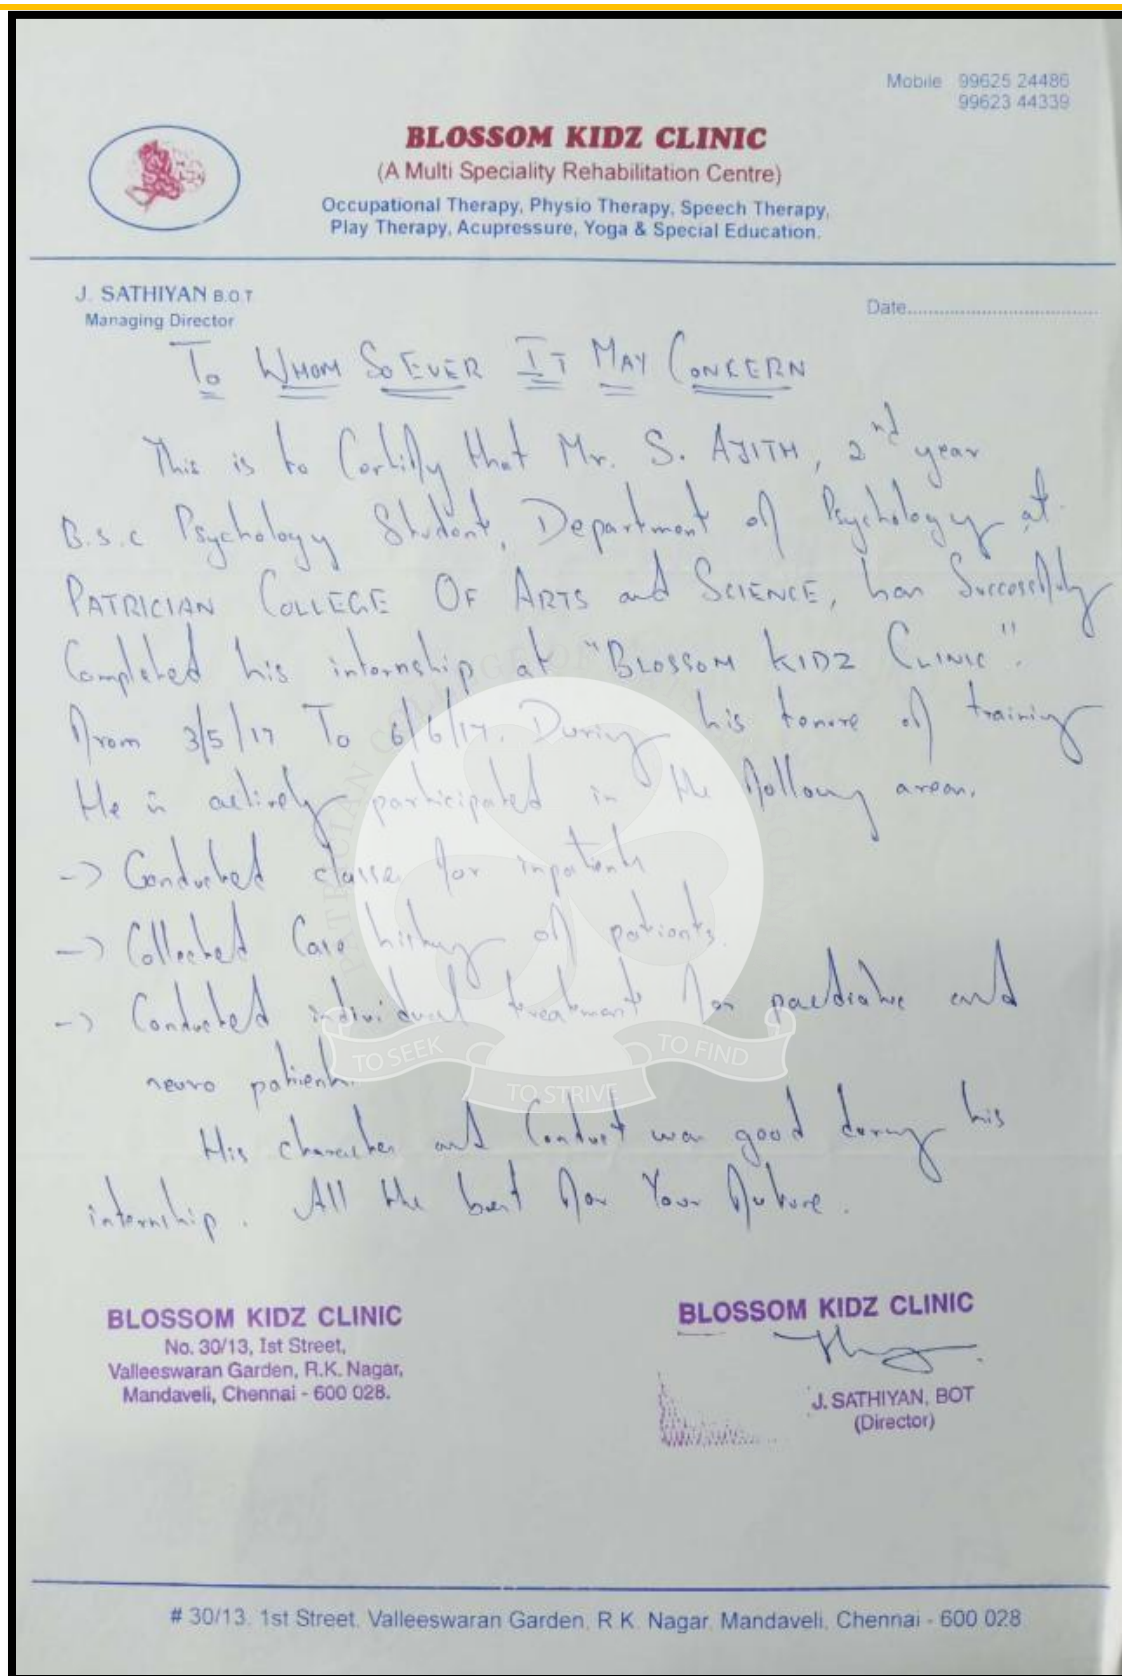 Mobile 99625 24486
99623 44339
BLOSSOM KIDZ CLINIC
(A Multi Speciality Rehabilitation Centre)
Occupational Therapy, Physio Therapy, Speech Therapy,
Play Therapy, Acupressure, Yoga & Special Education.
J. SATHIYAN B.O.T
Managing Director
Date
To WHOM SO EVER IT MAY CONCERN
This is to Certify that Mr. S. AJITH, 2nd year
B.s.c Psychology Student, Department of Psychology at
PATRICIAN COLLEGE OF ARTS and SCIENCE, has Successfully
Completed his internship at "BLOSSOM KIDZ CLINIC".
From 3/5/17 To 6/6/17. During his tenure of training
He is actively participated in the following areas.
-> Conducted classes for inpatients
-> Collected Case history of patients.
-> Conducted individual treatments for paediatric and
neuro patients.
His character and Conduct was good during his
internship. All the best for Your future.
TO SEEK
TO STRIVE
TO FIND
BLOSSOM KIDZ CLINIC
No. 30/13, Ist Street,
Valleeswaran Garden, R.K. Nagar,
Mandaveli, Chennai - 600 028.
BLOSSOM KIDZ CLINIC
J. SATHIYAN, BOT
(Director)
# 30/13, 1st Street, Valleeswaran Garden, R.K. Nagar, Mandaveli, Chennai - 600 028